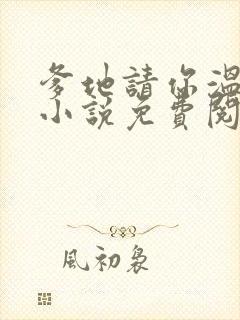 爹地請你溫
小說免費閱
風初裊